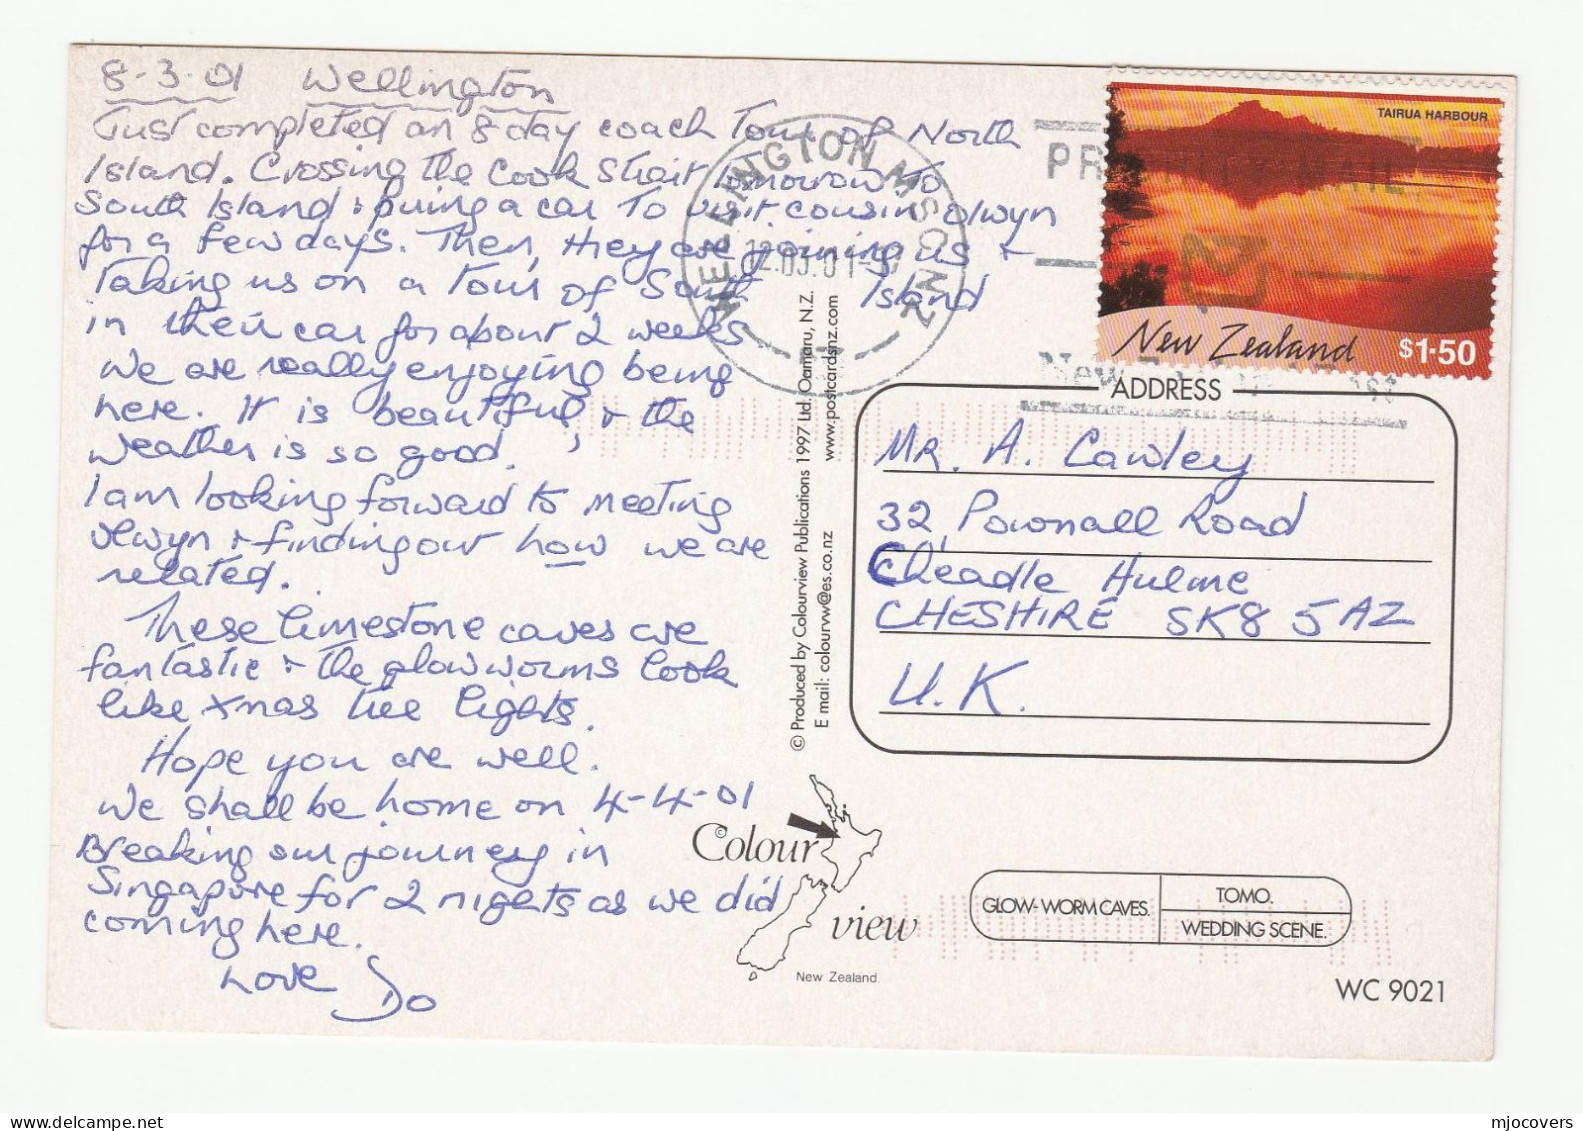 8-3-01 Wellington
Just completed an 8 day coach Tour of North
Island. Crossing the Cook Strait tomorrow to
South Island & hiring a car to visit cousin Olwyn
for a few days. Then, they are joining us &
taking us on a Tour of South Island
in their car for about 2 weeks.
We are really enjoying being
here. It is beautiful & the
weather is so good.
I am looking forward to meeting
Olwyn & finding out how we are
related.
These limestone caves are
fantastic & the glow worms look
like xmas tree lights.
Hope you are well.
We shall be home on 4-4-01
Breaking our journey in
Singapore for 2 nights as we did
coming here.
Love Jo
WELLINGTON MSC NZ
12.03.01
TAIRUA HARBOUR
New Zealand
$1.50
ADDRESS
Mr. A. Cawley
32, Pownall Road
Cheadle Hulme
CHESHIRE SK8 5AZ
U.K.
© Produced by Colourview Publications 1997 Ltd. Oamaru, N.Z.
E mail: colourvw@es.co.nz www.postcardsnz.com
© Colour
view
New Zealand.
GLOW-WORM CAVES.
TOMO.
WEDDING SCENE.
WC 9021
delcampe.net
mjocovers